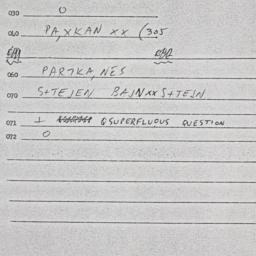 030 0
040 PA,XKAN XX (305
060 PARTKA,NES
070 S+TEJEN BAJNXXS+TEJN
071 1 QSUPERFLUOUS QUESTION
072 0